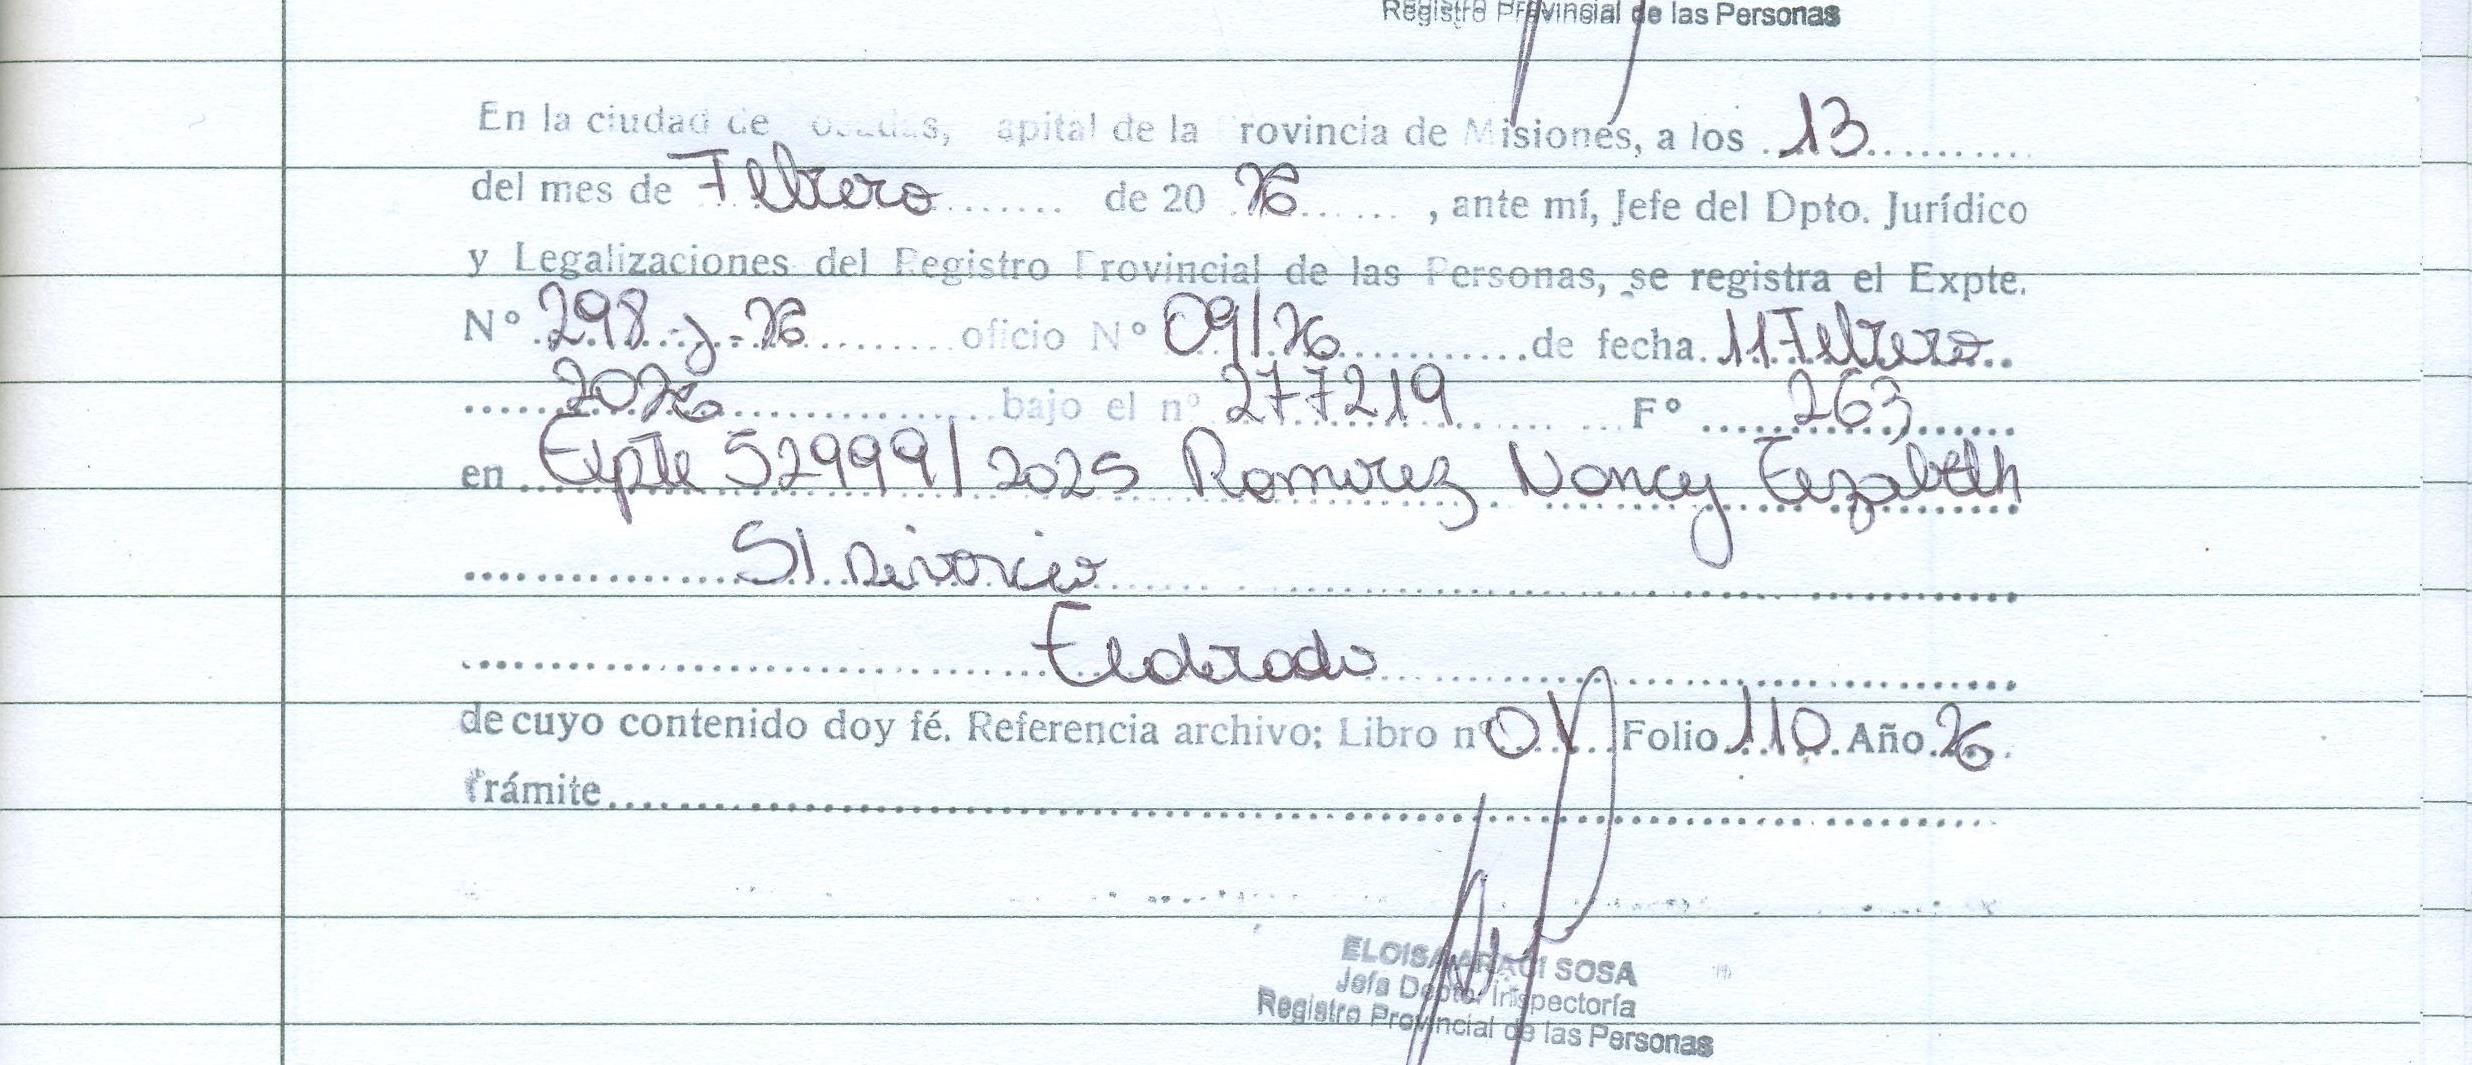 Registro Provincial de las Personas
En la ciudad de Posadas, Capital de la Provincia de Misiones, a los 13
del mes de Febrero de 20 26, ante mí, Jefe del Dpto. Jurídico
y Legalizaciones del Registro Provincial de las Personas, se registra el Expte.
Nº 298-J-26 oficio Nº 09/26 de fecha 11 Febrero
2026 bajo el nº 277219 Fº 263
en Expte 52999/2025 Ramirez Nancy Elizabeth
S/ Divorcio
Eldorado
de cuyo contenido doy fé. Referencia archivo; Libro nº 01 Folio 110 Año 26
Trámite
ELOISA ARACI SOSA
Jefa Depto. Inspectoría
Registro Provincial de las Personas